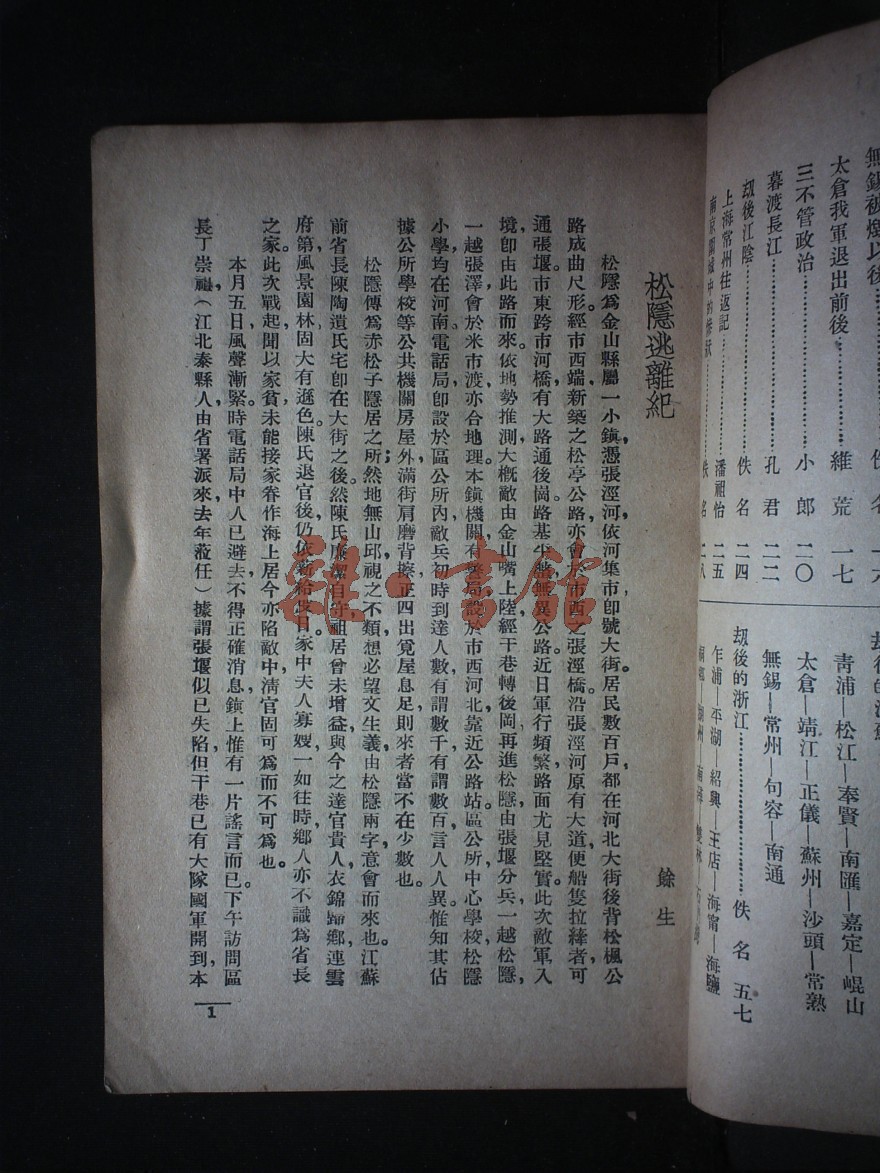 無錫被燬以後
佚名 一六
太倉我軍退出前後 維荒 一七
三不管政治 小郎 二〇
暮渡長江 孔君 二二
劫後江陰 佚名 二四
上海常州往返記 潘祖怡 二五
佚名 二八
青浦—松江—奉賢—南匯—嘉定—崐山
太倉—靖江—正儀—蘇州—沙頭—常熟
無錫—常州—句容—南通
劫後的浙江 佚名 五七
乍浦—平湖—紹興—王店—海甯—海鹽
松隱逃離紀
餘生
松隱爲金山縣屬一小鎭，憑張涇河，依河集市，卽號大街。居民數百戶，都在河北大街後，背松楓公
路成曲尺形，經市西端新築之松亭公路，亦會於市西之張涇橋。沿張涇河原有大道，便船隻拉縴者，可
通張堰。市東跨市河橋，有大路通後崗，路基尖礬，無異公路。近日軍行頻繁，路面尤見堅實。此次敵軍入
境，卽由此路而來。依地勢推測，大槪敵由金山嘴上陸，經干巷，轉後岡，再進松隱；由張堰分兵，一越松隱，
一越張澤，會於米市渡，亦合地理。本鎭機關，有警局，設於市西河北，靠近公路站。區公所，中心學校，松隱
小學，均在河南。電話局卽設於區公所內。敵兵初時到達人數，有謂數千，有謂數百，言人人異，惟知其佔
據公所學校等公共機關房屋外，滿街肩磨背擦，正四出覓屋息足，則來者當不在少數也。
松隱傳爲赤松子隱居之所；然地無山邱，視之不類，想必望文生義，由松隱兩字，意會而來也。江蘇
前省長陳陶遺氏宅，卽在大街之後。然陳氏廉潔自守，祖居曾未增益，與今之達官貴人，衣錦歸鄕，連雲
府第，風景園林，固大有遜色。陳氏退官後，仍依薪給度日，家中夫人寡嫂，一如往時，鄕人亦不識爲省長
之家。此次戰起，聞以家貧未能接家眷作海上居，今亦陷敵中，淸官固可爲而不可爲也。
本月五日，風聲漸緊。時電話局中人已避去，不得正確消息，鎭上惟有一片謠言而已。下午訪問區
長丁崇（江北泰縣人由省署派來去年蒞任）據謂張堰似已失陷，但干巷已有大隊國軍開到，本
1